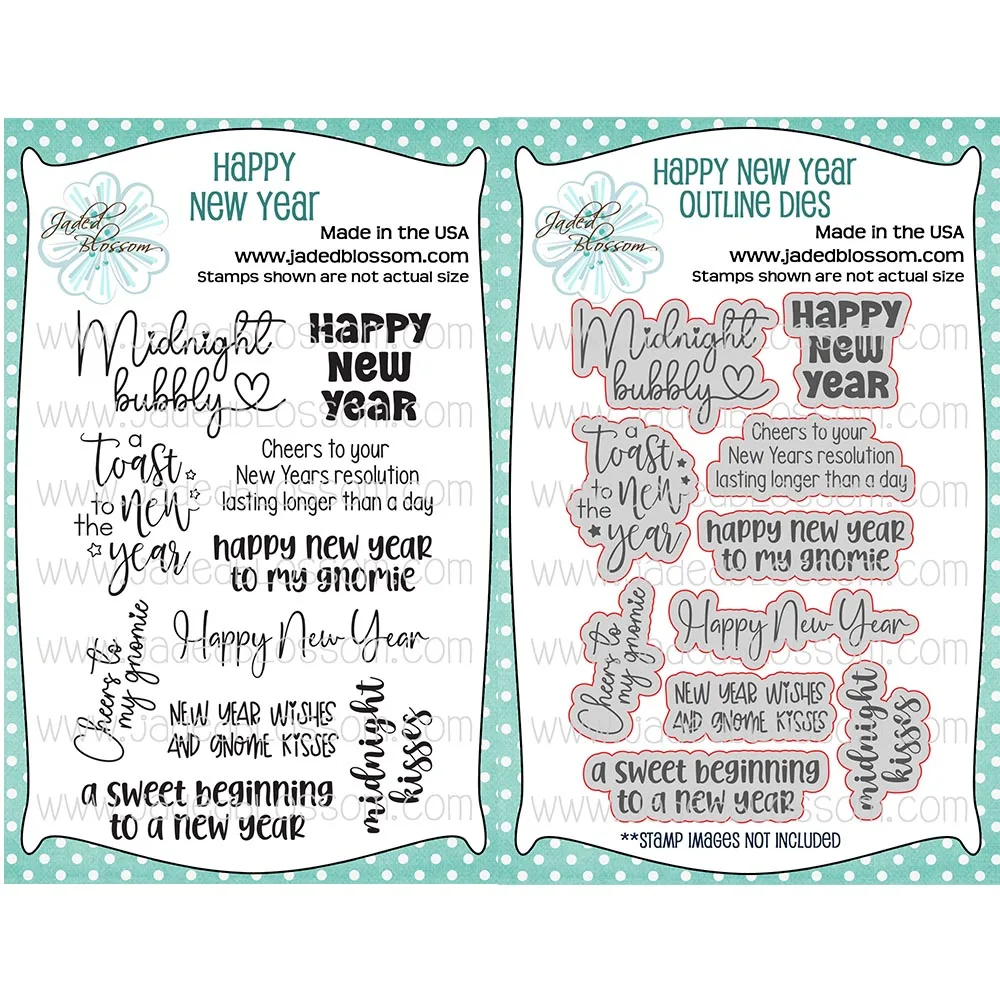 Happy
New Year
Jaded
Blossom
Made in the USA
www.jadedblossom.com
Stamps shown are not actual size
Midnight
bubbly
Happy
New
Year
a
Toast
to
the
New
year
Cheers to your
New Years resolution
lasting longer than a day
happy new year
to my gnomie
Cheers to
my gnomie
Happy New Year
New Year Wishes
and gnome kisses
midnight
kisses
a sweet beginning
to a new year
www.JadedBlossom.com
www.JadedBlossom.com
www.JadedBlossom.com
www.JadedBlossom.com
www.JadedBlossom.com
www.JadedBlossom.com
Happy New Year
Outline Dies
Jaded
Blossom
Made in the USA
www.jadedblossom.com
Stamps shown are not actual size
Midnight
bubbly
Happy
New
Year
a
Toast
to
the
New
year
Cheers to your
New Years resolution
lasting longer than a day
happy new year
to my gnomie
Cheers to
my gnomie
Happy New Year
New Year Wishes
and gnome kisses
midnight
kisses
a sweet beginning
to a new year
**Stamp images not included
www.JadedBlossom.com
www.JadedBlossom.com
www.JadedBlossom.com
www.JadedBlossom.com
www.JadedBlossom.com
www.JadedBlossom.com